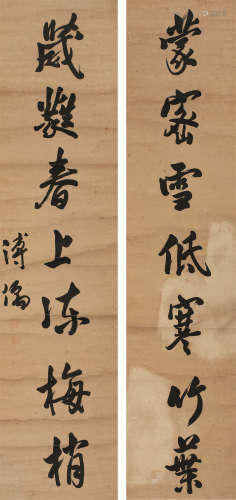 蒙密雪低寒竹葉
葳蕤春上凍梅梢
溥